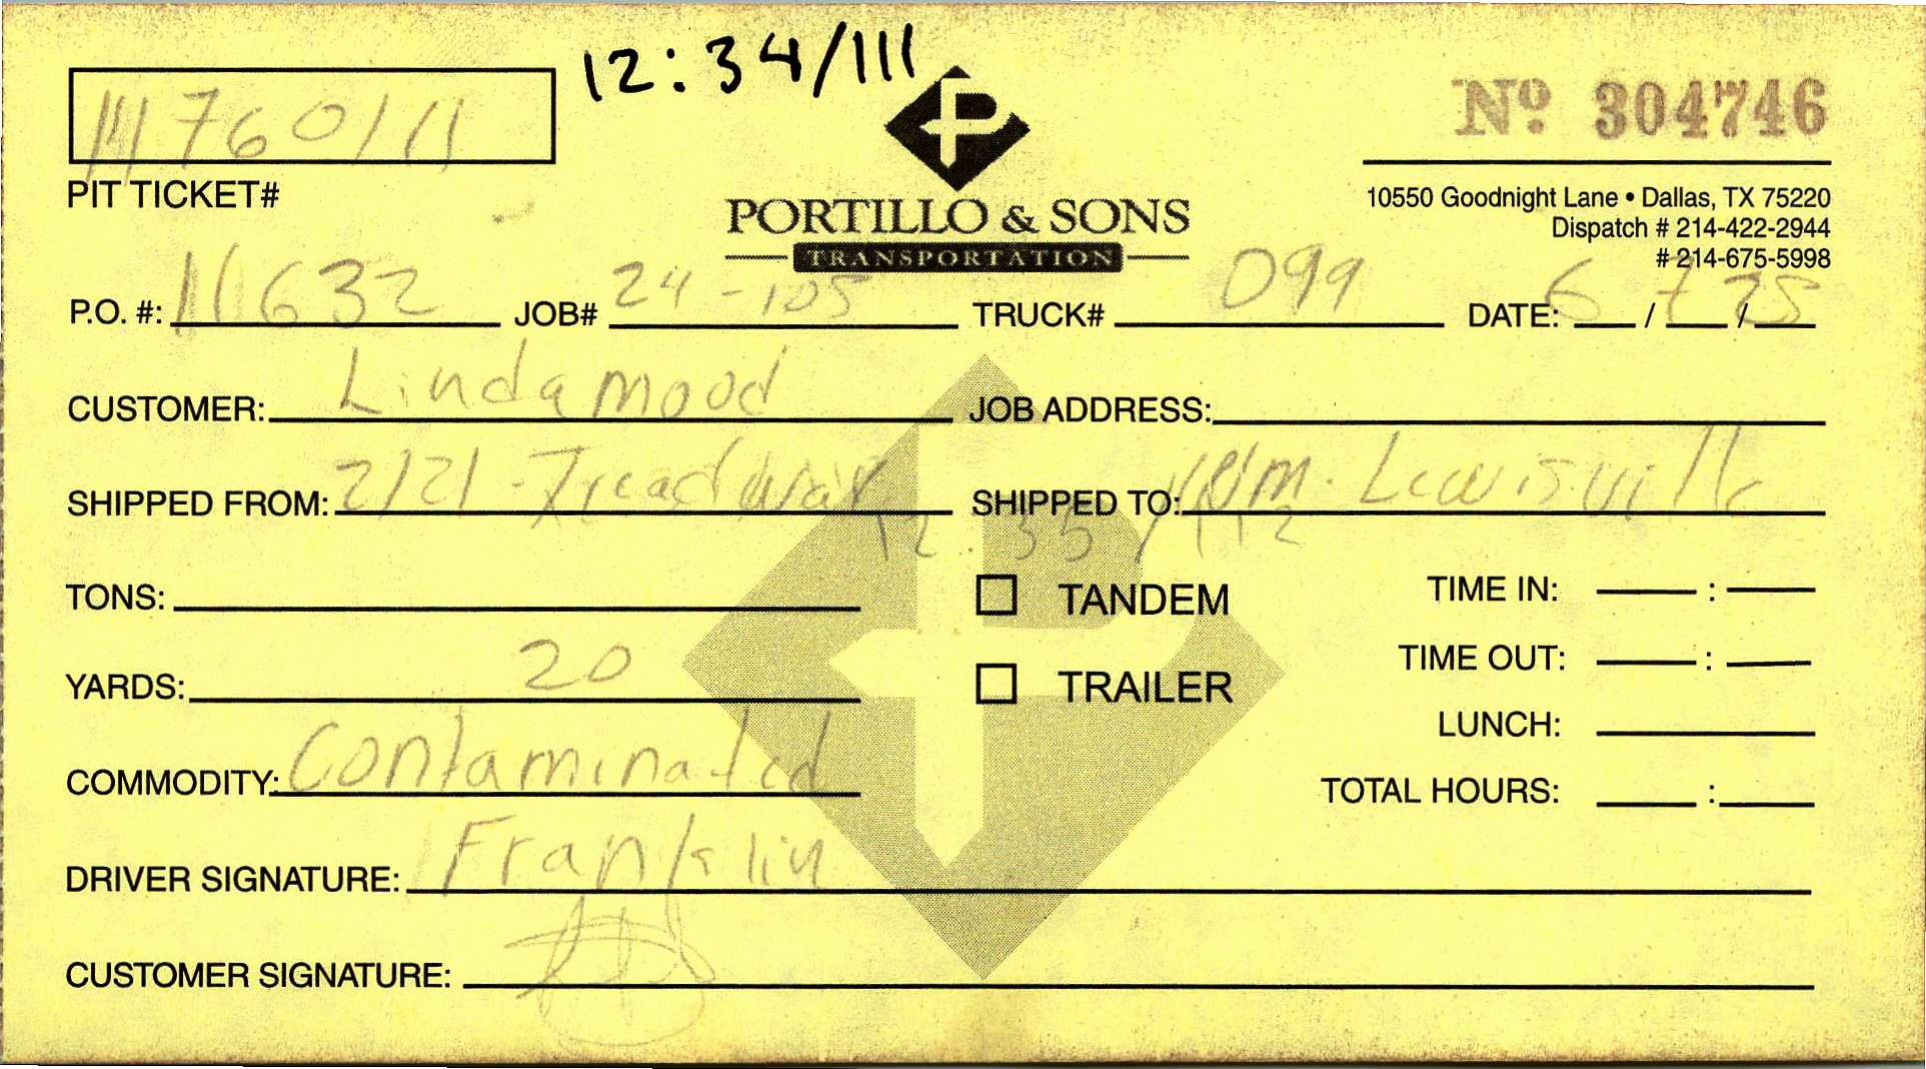 12:34/111
Nº 304746
11760111
PIT TICKET#
PORTILLO & SONS
TRANSPORTATION
10550 Goodnight Lane • Dallas, TX 75220
Dispatch # 214-422-2944
# 214-675-5998
P.O. #: 11632 JOB# 24-105 TRUCK# 099 DATE: 6 / 7 / 25
CUSTOMER: Lindamood JOB ADDRESS:
SHIPPED FROM: 2121-Treadway SHIPPED TO: WM. Lewisville
12:35/112
TONS: TANDEM TIME IN: :
YARDS: 20 TRAILER TIME OUT: :
LUNCH:
COMMODITY: Contaminated TOTAL HOURS: :
DRIVER SIGNATURE: Franklin
CUSTOMER SIGNATURE: